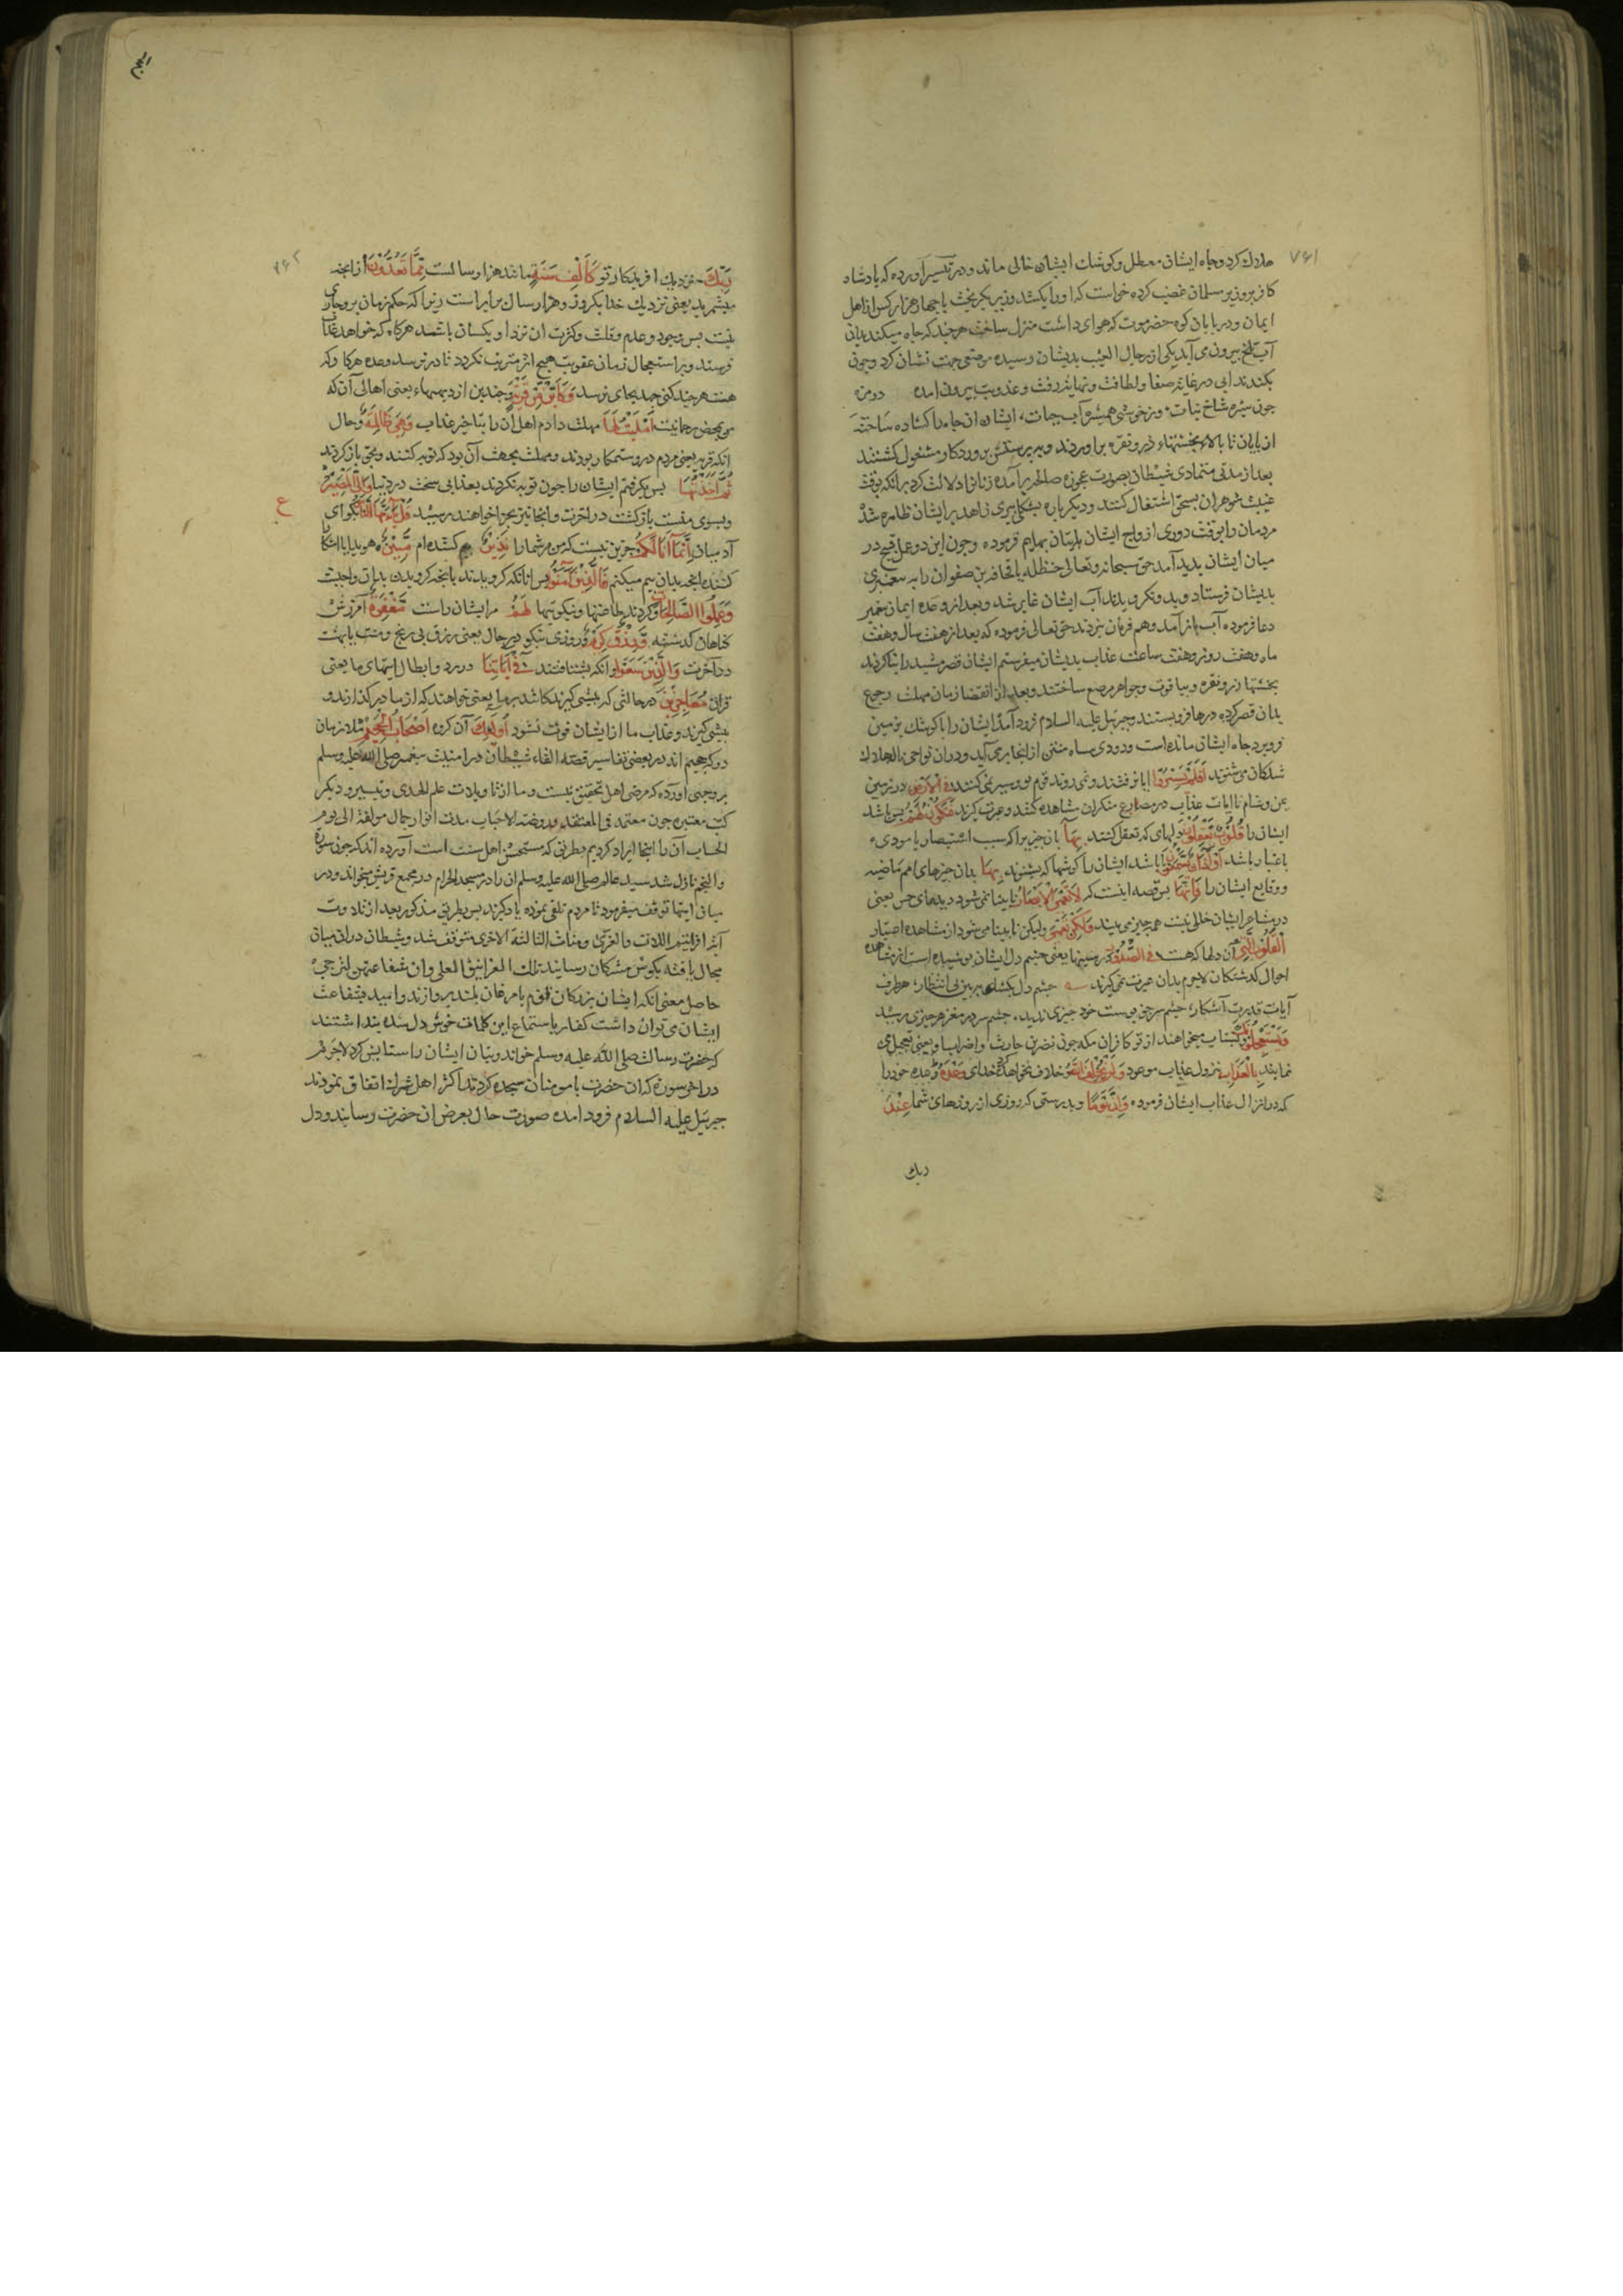 ۷۶۱
هلاك كرد وچاه ايشان معطل وكوشك ايشان خالى ماند ودر تيسير آورده كه پادشاه
كافر بر وزير مسلمان غضب كرده خواست كه او را بكشد وزير بگريخت با چهار هزار كس از اهل
ايمان ودر پايان كوه حضرموت كه هواى داشت منزل ساخت هر چند كه چاه ميكندند
آب تلخ بيرون مى آمد يكى از رجال الغيب بديشان رسيده موضعى جهت نشان كرد وچون
بكندند آبى در غايت صفا ولطافت ونهايت رقت وعذوبت بيرون آمده دو مزه
چون شيره شاخ نبات وز خوشى همشيره آب حيات ايشان آن چاه را گشاده ساخته
از پايان تا بالا بخشتهاء زر ونقره بر آوردند وبه پرستش پروردكار مشغول گشتند
بعد از مدتى متمادى شيطان بصورت عجوزه صالحه بر آمده زنانرا دلالت كرد بر آنكه بوقت
غيبت شوهران بسحق اشتغال كنند وديكر باره بشكل پيرى زاهد بر ايشان ظاهر شد
مردمان را بوقت دورى از ازواج ايشان باتيان بهايم فرموده وچون اين دو عمل قبيح در
ميان ايشان پديد آمد حق سبحانه وتعالى حنظله يا قحافه بن صفوان را به پيغمبرى
بديشان فرستاد وبدو نكرويدند آب ايشان غاير شد وبعد از وعده ايمان پيغمبر
دعا فرموده آب باز آمد وهم فرمان نبردند حق تعالى فرموده كه بعد از هفت سال وهفت
ماه وهفت روز وهفت ساعت عذاب بديشان ميفرستم ايشان قصر مشيد را بنا كردند
بخشتها زر ونقره وبياقوت وجواهر مرصع ساختند وبعد از انقضا زمان مهلت رجوع
بدان قصر كرده درها فرو بستند وجبرئيل عليه السلام فرود آمد ايشان را با كوشك بزمين
فرو برد چاه ايشان مانده است ودودى سياه منتن از آنجا بر مى آيد ودر آن نواحى ناله هلاك
شدكان مى شنوند أَفَلَمْ يَسِيرُوا آيا نرفتند ونمى روند قوم تو وسير نمى كنند فِي الْأَرْضِ در زمين
يمن وشام تا آيات عذاب در مصارع منكران مشاهده كنند وعبرت گيرند فَتَكُونَ لَهُمْ پس باشد
ايشان را قُلُوبٌ يَعْقِلُونَ دلهاى كه تعقل كنند بِهَا بآن چيزيرا كه سبب استبصار يا مودى
باعتبار باشد أَوْ آذَانٌ يَسْمَعُونَ يا باشد ايشان را گوشها كه بشنوند بِهَا بدان خبرهاى امم ماضيه
ووقايع ايشان را فَإِنَّهَا پس قصه اينست كه لَا تَعْمَى الْأَبْصَارُ نابينا نمى شود ديدهاى حس يعنى
در مشاعر ايشان خللى نيست همه چيز مى بينند وَلَكِنْ تَعْمَى وليكن نابينا مى شود از مشاهده اعتبار
الْقُلُوبُ الَّتِي آن دلها كه هست فِي الصُّدُورِ در سينها يعنى چشم دل ايشان پوشيده است از مشاهده
احوال گذشتكان لاجرم بدان عبرت نمى گيرند چشم دل بگشاى ببين بى انتظار هر طرف
آيات قدرت آشكار چشم سر جز پوست خود چيزى نديد چشم سر در مغز هر چيزى رسيد
وَيَسْتَعْجِلُونَكَ وبشتاب ميخواهند از تو كافران مكه چون نضر بن حارث واضراب او يعنى تعجيل مى
نمايند بِالْعَذَابِ بنزول عذاب موعود وَلَنْ يُخْلِفَ اللَّهُ وخلاف نخواهد كرد خداى وَعْدَهُ وعده خود را
كه در انزال عذاب ايشان فرموده وَإِنَّ يَوْمًا وبدرستى كه روزى از روزهاى شما عِنْدَ
ربك
الحج
۷۶۲
رَبِّكَ نزديك آفريدكار تو كَأَلْفِ سَنَةٍ مانند هزار سالست مِمَّا تَعُدُّونَ از آنچه
ميشمريد يعنى نزديك خدا يكروز وهزار سال برابر است زيرا كه حكم زمان برو جارى
نيست پس وجود وعدم وقلت وكثرت آن نزد او يكسان باشد هر كاه كه خواهد عذاب
فرستد وبر استعجال زمان عقوبت هيچ اثر مترتب نكردد تا در نرسد وعده هر كار كه
هست هر چند كنى جهد بجاى نرسد وَكَأَيِّنْ مِنْ قَرْيَةٍ وچندين از ديههاء يعنى اهالى آن كه
من بمحض رحمانيت أَمْلَيْتُ لَهَا مهلت دادم اهل آن را بتاخير عذاب وَهِيَ ظَالِمَةٌ وحال
آنكه قريه يعنى مردم در وستمكار بودند ومهلت بجهت آن بود كه توبه كنند وبحق باز كردند
ثُمَّ أَخَذْتُهَا پس بگرفتم ايشان را چون توبه نكردند بعذابى سخت در دنيا وَإِلَيَّ الْمَصِيرُ
وبسوى منست بازگشت در آخرت وآنجا نيز بجزا خواهند رسيد قُلْ يَا أَيُّهَا النَّاسُ بگو اى
ع
آدميان إِنَّمَا أَنَا لَكُمْ جزين نيست كه من مر شما را نَذِيرٌ بيم كننده ام مُبِينٌ هويدا يا آشكارا
كننده آنچه بدان بيم ميكنم فَالَّذِينَ آمَنُوا پس آنانكه كرويدند بآنچه كرويدن بدان واجبست
وَعَمِلُوا الصَّالِحَاتِ وكردند طاعتها ونيكوييها لَهُمْ مر ايشان راست مَغْفِرَةٌ آمرزش
گناهان گذشته وَرِزْقٌ كَرِيمٌ وروزى نيكو در حال يعنى رزق بى رنج ومنت يا بهشت
در آخرت وَالَّذِينَ سَعَوْا وآنانكه بشتافتند فِي آيَاتِنَا در رد وابطال آيتهاى ما يعنى
قرآن مُعَاجِزِينَ در حالتى كه پيشى گيرندكانند بر ما يعنى خواهند كه از ما در گذارند و
پيشى گيرند وعذاب ما از ايشان فوت نشود أُولَئِكَ آن گروه أَصْحَابُ الْجَحِيمِ ملازمان
دوزخ جحيم اند در بعضى تفاسير قصه القاء شيطان در امنيت پيغمبر صلى الله عليه وسلم
بر وجهى آورده كه مرضى اهل تحقيق نيست وما از تاويلات علم الهدى وتيسير وديكر
كتب معتبره چون معتمد فى المعتقد وروضة الاحباب مدت انوار جمال مولفة الى يوم
الحساب آن را اينجا ايراد كرديم بطريقى كه مستحسن اهل سنت است آورده اند كه چون سورة
والنجم نازل شد سيد عالم صلى الله عليه وسلم آن را در مسجد الحرام در مجمع قريش ميخواند ودر
ميان آيتها توقف ميفرمود تا مردم تلقى نموده ياد گيرند پس بطريق مذكور بعد از تلاوت
آية افرايتم اللات والعزى ومناة الثالثة الاخرى متوقف شد وشيطان در آن ميان
مجال يافته بگوش مشركان رسانيد تلك الغرانيق العلى وان شفاعتهن لترتجى
حاصل معنى آنكه ايشان بزرگان قوم يا مرغان بلند پروازند واميد بشفاعت
ايشان مى توان داشت كفار باستماع اين كلمات خوش دل شده پنداشتند
كه حضرت رسالت صلى الله عليه وسلم خواند وبتان ايشان را ستايش كرد لاجرم
در آخر سوره كه آن حضرت با مومنان سجده كردند اكثر اهل شرك اتفاق نمودند
جبرئيل عليه السلام فرود آمده صورت حال بعرض آن حضرت رسانيد ودل